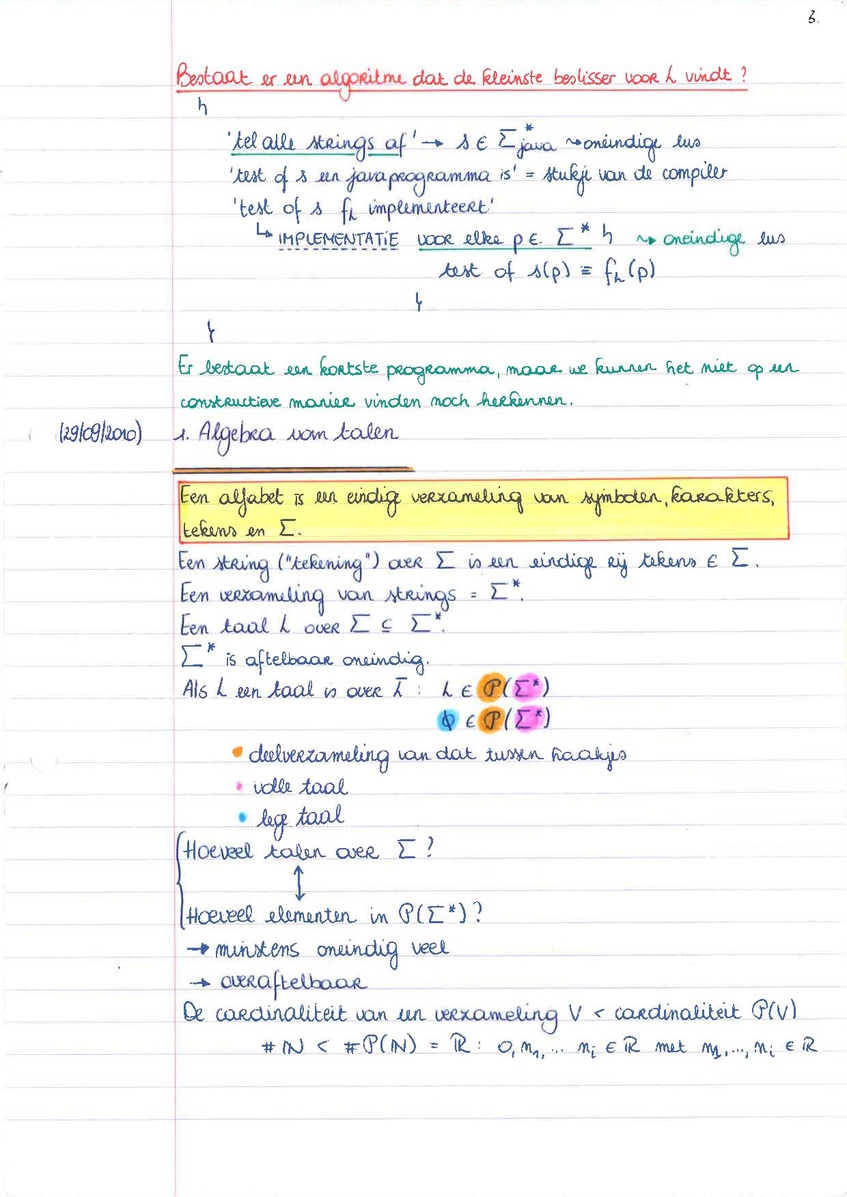 3.
Bestaat er een algoritme dat de kleinste beslisser voor L vindt?
{
'tel alle strings af' → s ∈ Σ*java ⤳ oneindige lus
'test of s een javaprogramma is' = stukje van de compiler
'test of s fL implementeert'
↳ IMPLEMENTATIE voor elke p ∈ Σ* { ⤳ oneindige lus
test of s(p) ≡ fL(p)
}
}
Er bestaat een kortste programma, maar we kunnen het niet op een
constructieve manier vinden noch herkennen.
(29/09/2010) 1. Algebra van talen
Een alfabet is een eindige verzameling van symbolen, karakters,
tekens en Σ.
Een string ("tekening") over Σ is een eindige rij tekens ∈ Σ.
Een verzameling van strings = Σ*.
Een taal L over Σ ⊆ Σ*.
Σ* is aftelbaar oneindig.
Als L een taal is over Σ : L ∈ P(Σ*)
ϕ ∈ P(Σ*)
• deelverzameling van dat tussen haakjes
• volle taal
• lege taal
Hoeveel talen over Σ ?
↕
Hoeveel elementen in P(Σ*)?
→ minstens oneindig veel
→ overaftelbaar
De cardinaliteit van een verzameling V < cardinaliteit P(V)
#ℕ < #P(ℕ) = ℝ : 0,n1,... ni ∈ ℝ met n1,...,ni ∈ ℝ